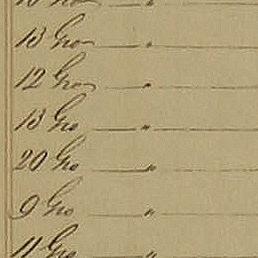 13 Gro — "
12 Gro — "
13 Gro — "
20 Gro — "
9 Gro — "
11 Gro — "